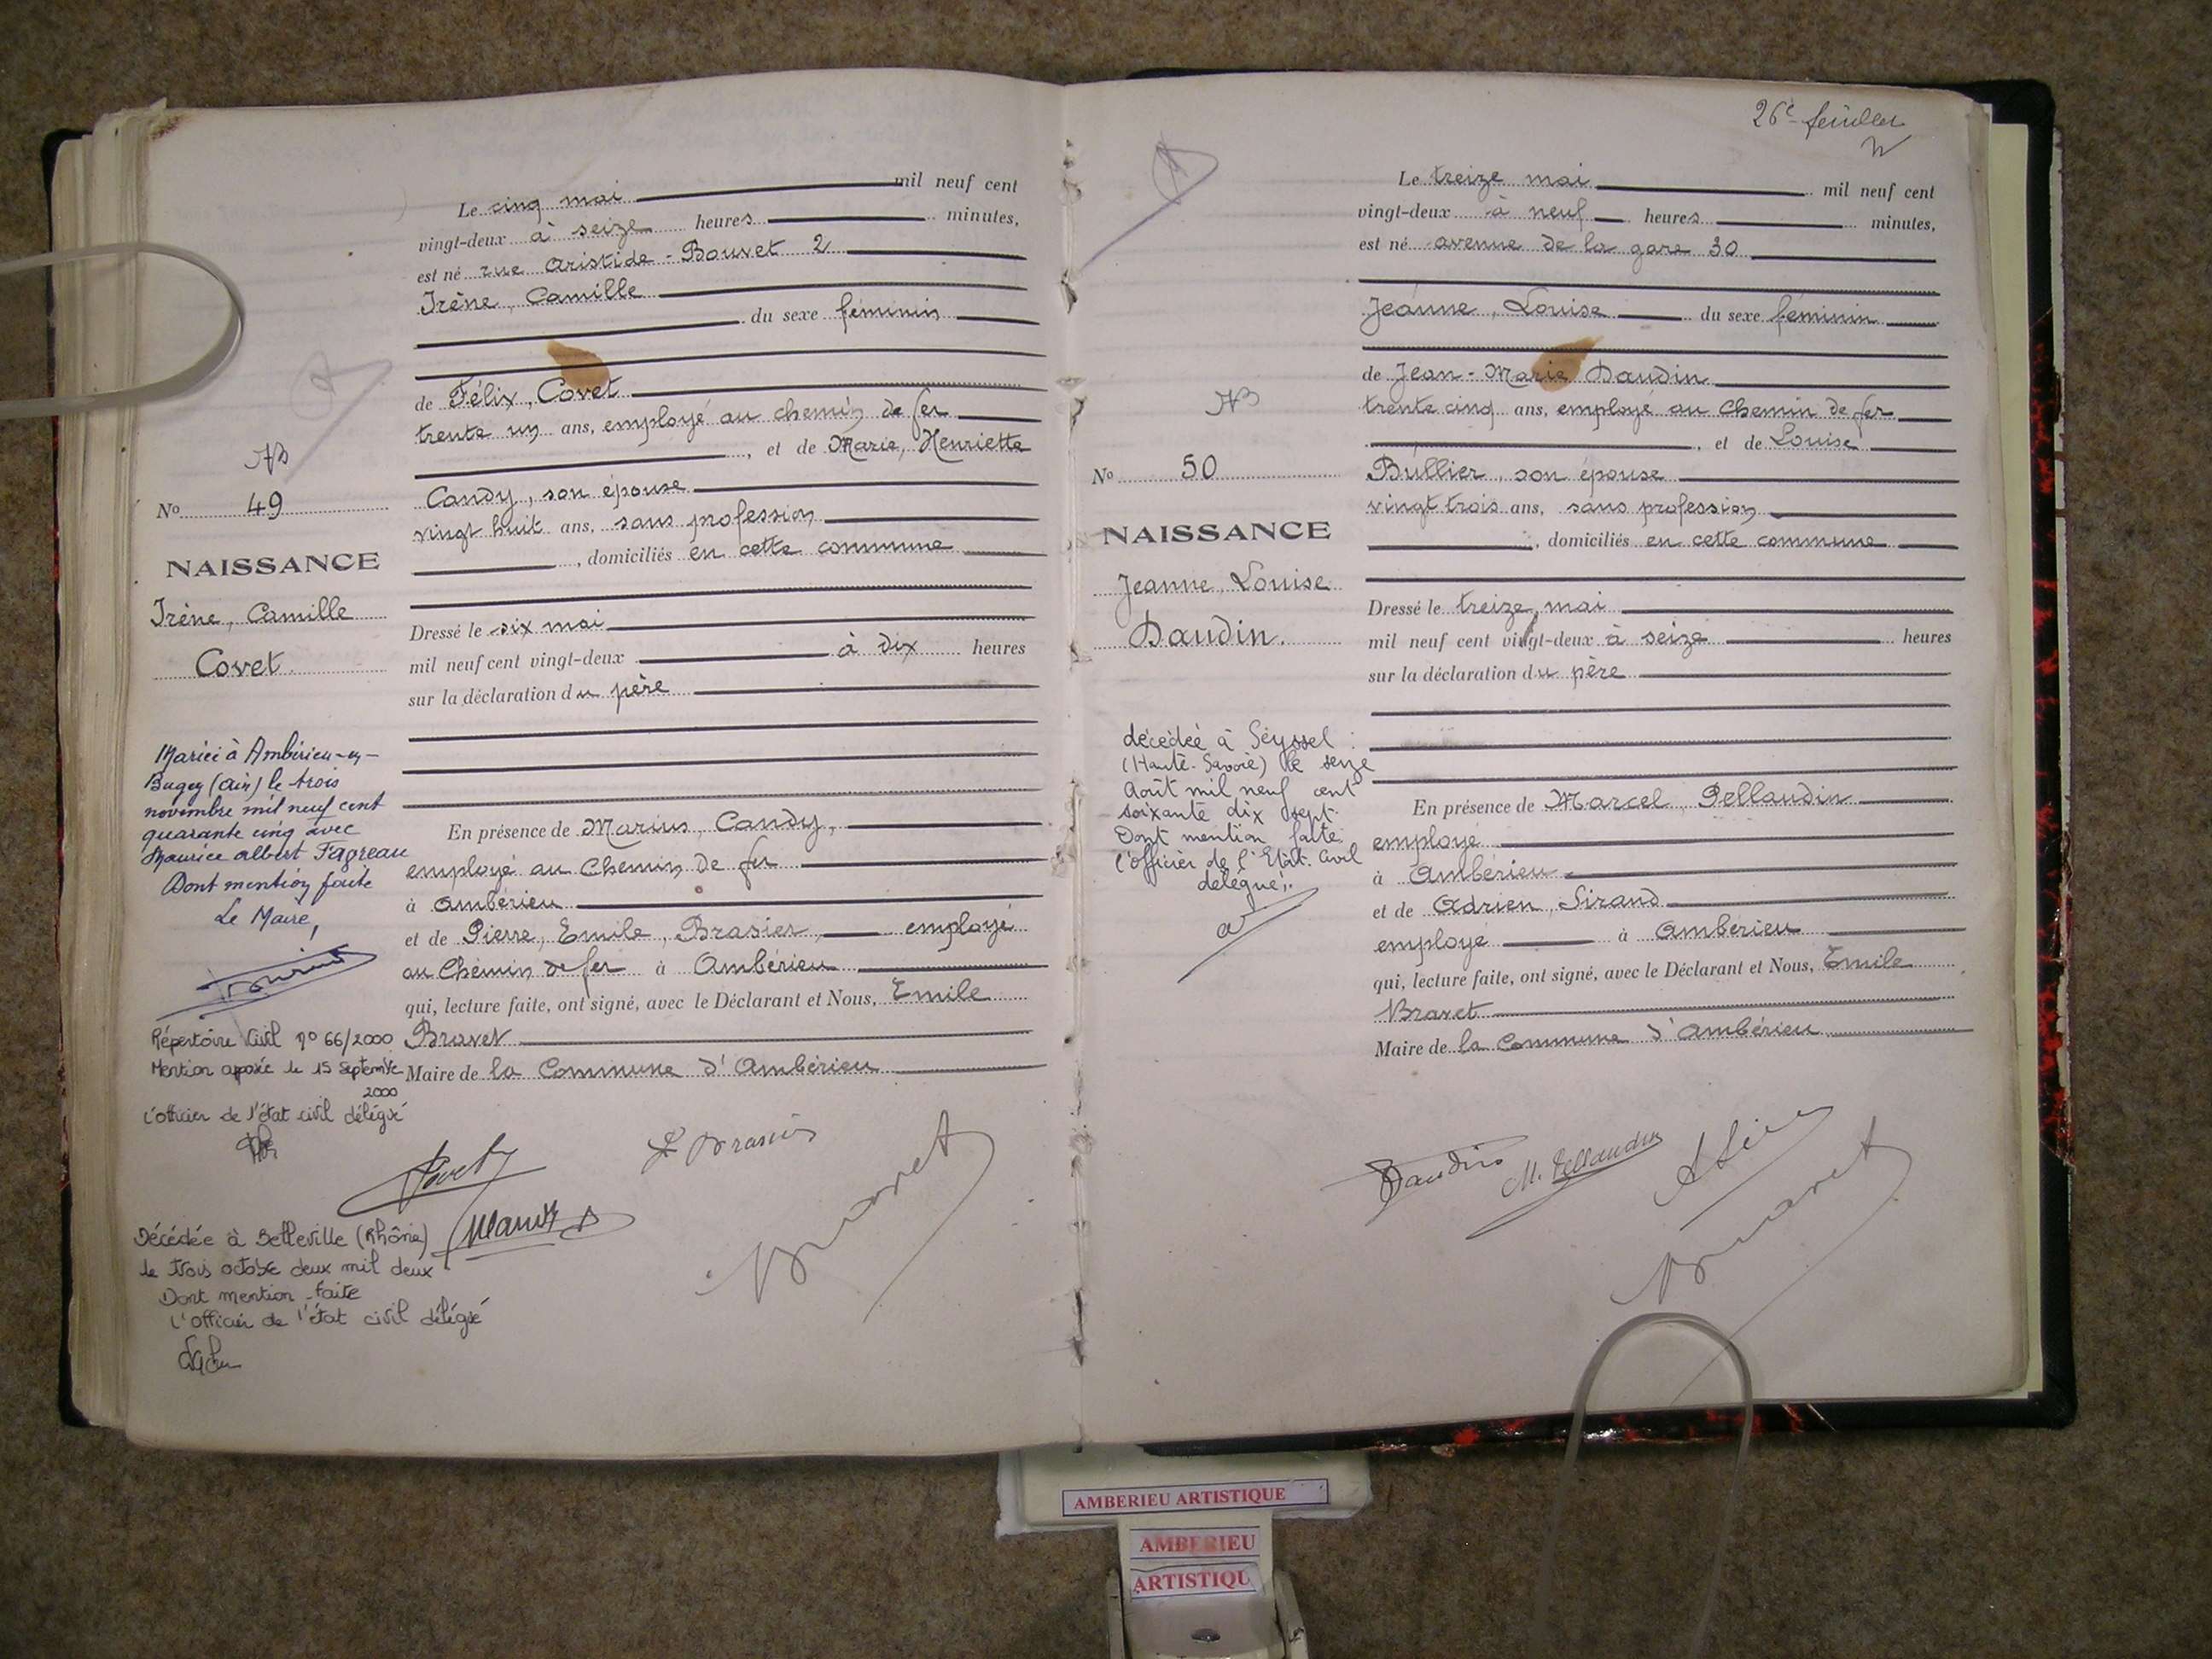 Le cinq mai mil neuf cent
vingt-deux à seize heures minutes,
est né rue Aristide-Bouvet 2
Irène, Camille
du sexe féminin
de Félix, Covet
trente un ans, employé au chemin de fer
, et de Marie, Henriette
Candy, son épouse
vingt huit ans, sans profession
, domiciliés en cette commune
Dressé le six mai
mil neuf cent vingt-deux à dix heures
sur la déclaration du père
En présence de Marius, Candy,
employé au Chemin de fer
à Ambérieu
et de Pierre, Emile, Brasier, employé
au Chemin de fer à Ambérieu
qui, lecture faite, ont signé, avec le Déclarant et Nous, Emile
Bravet
Maire de la Commune d'Ambérieu
No 49
NAISSANCE
Irène, Camille
Covet.
Mariée à Ambérieu-en-
Bugey (Ain) le trois
novembre mil neuf cent
quarante cinq avec
Maurice Albert Fagreau
Dont mention faite
Le Maire,
Répertoire Civil no 66/2000
Mention apposée le 15 Septembre
2000
L'officier de l'état civil délégué
Décédée à Belleville (Rhône)
le trois octobre deux mil deux
Dont mention faite
L'officier de l'état civil délégué
Covet
Bravet
26e feuillet
Le treize mai mil neuf cent
vingt-deux à neuf heures minutes,
est né avenue de la gare 30
Jeanne, Louise du sexe féminin
de Jean-Marie Daudin
trente cinq ans, employé au Chemin de fer
, et de Louise
Bullier, son épouse
vingt trois ans, sans profession
, domiciliés en cette commune
Dressé le treize mai
mil neuf cent vingt-deux à seize heures
sur la déclaration du père
En présence de Marcel, Pellaudin
employé
à Ambérieu
et de Adrien, Sirand
employé à Ambérieu
qui, lecture faite, ont signé, avec le Déclarant et Nous, Emile
Bravet
Maire de la Commune d'Ambérieu
No 50
NAISSANCE
Jeanne, Louise
Daudin.
décédée à Seyssel
(Haute-Savoie) le seize
Août mil neuf cent
soixante dix sept.
Dont mention faite
l'officier de l'Etat Civil
délégué.
Daudin
M. Pellaudin
Bravet
AMBERIEU ARTISTIQUE
AMBERIEU
ARTISTIQU